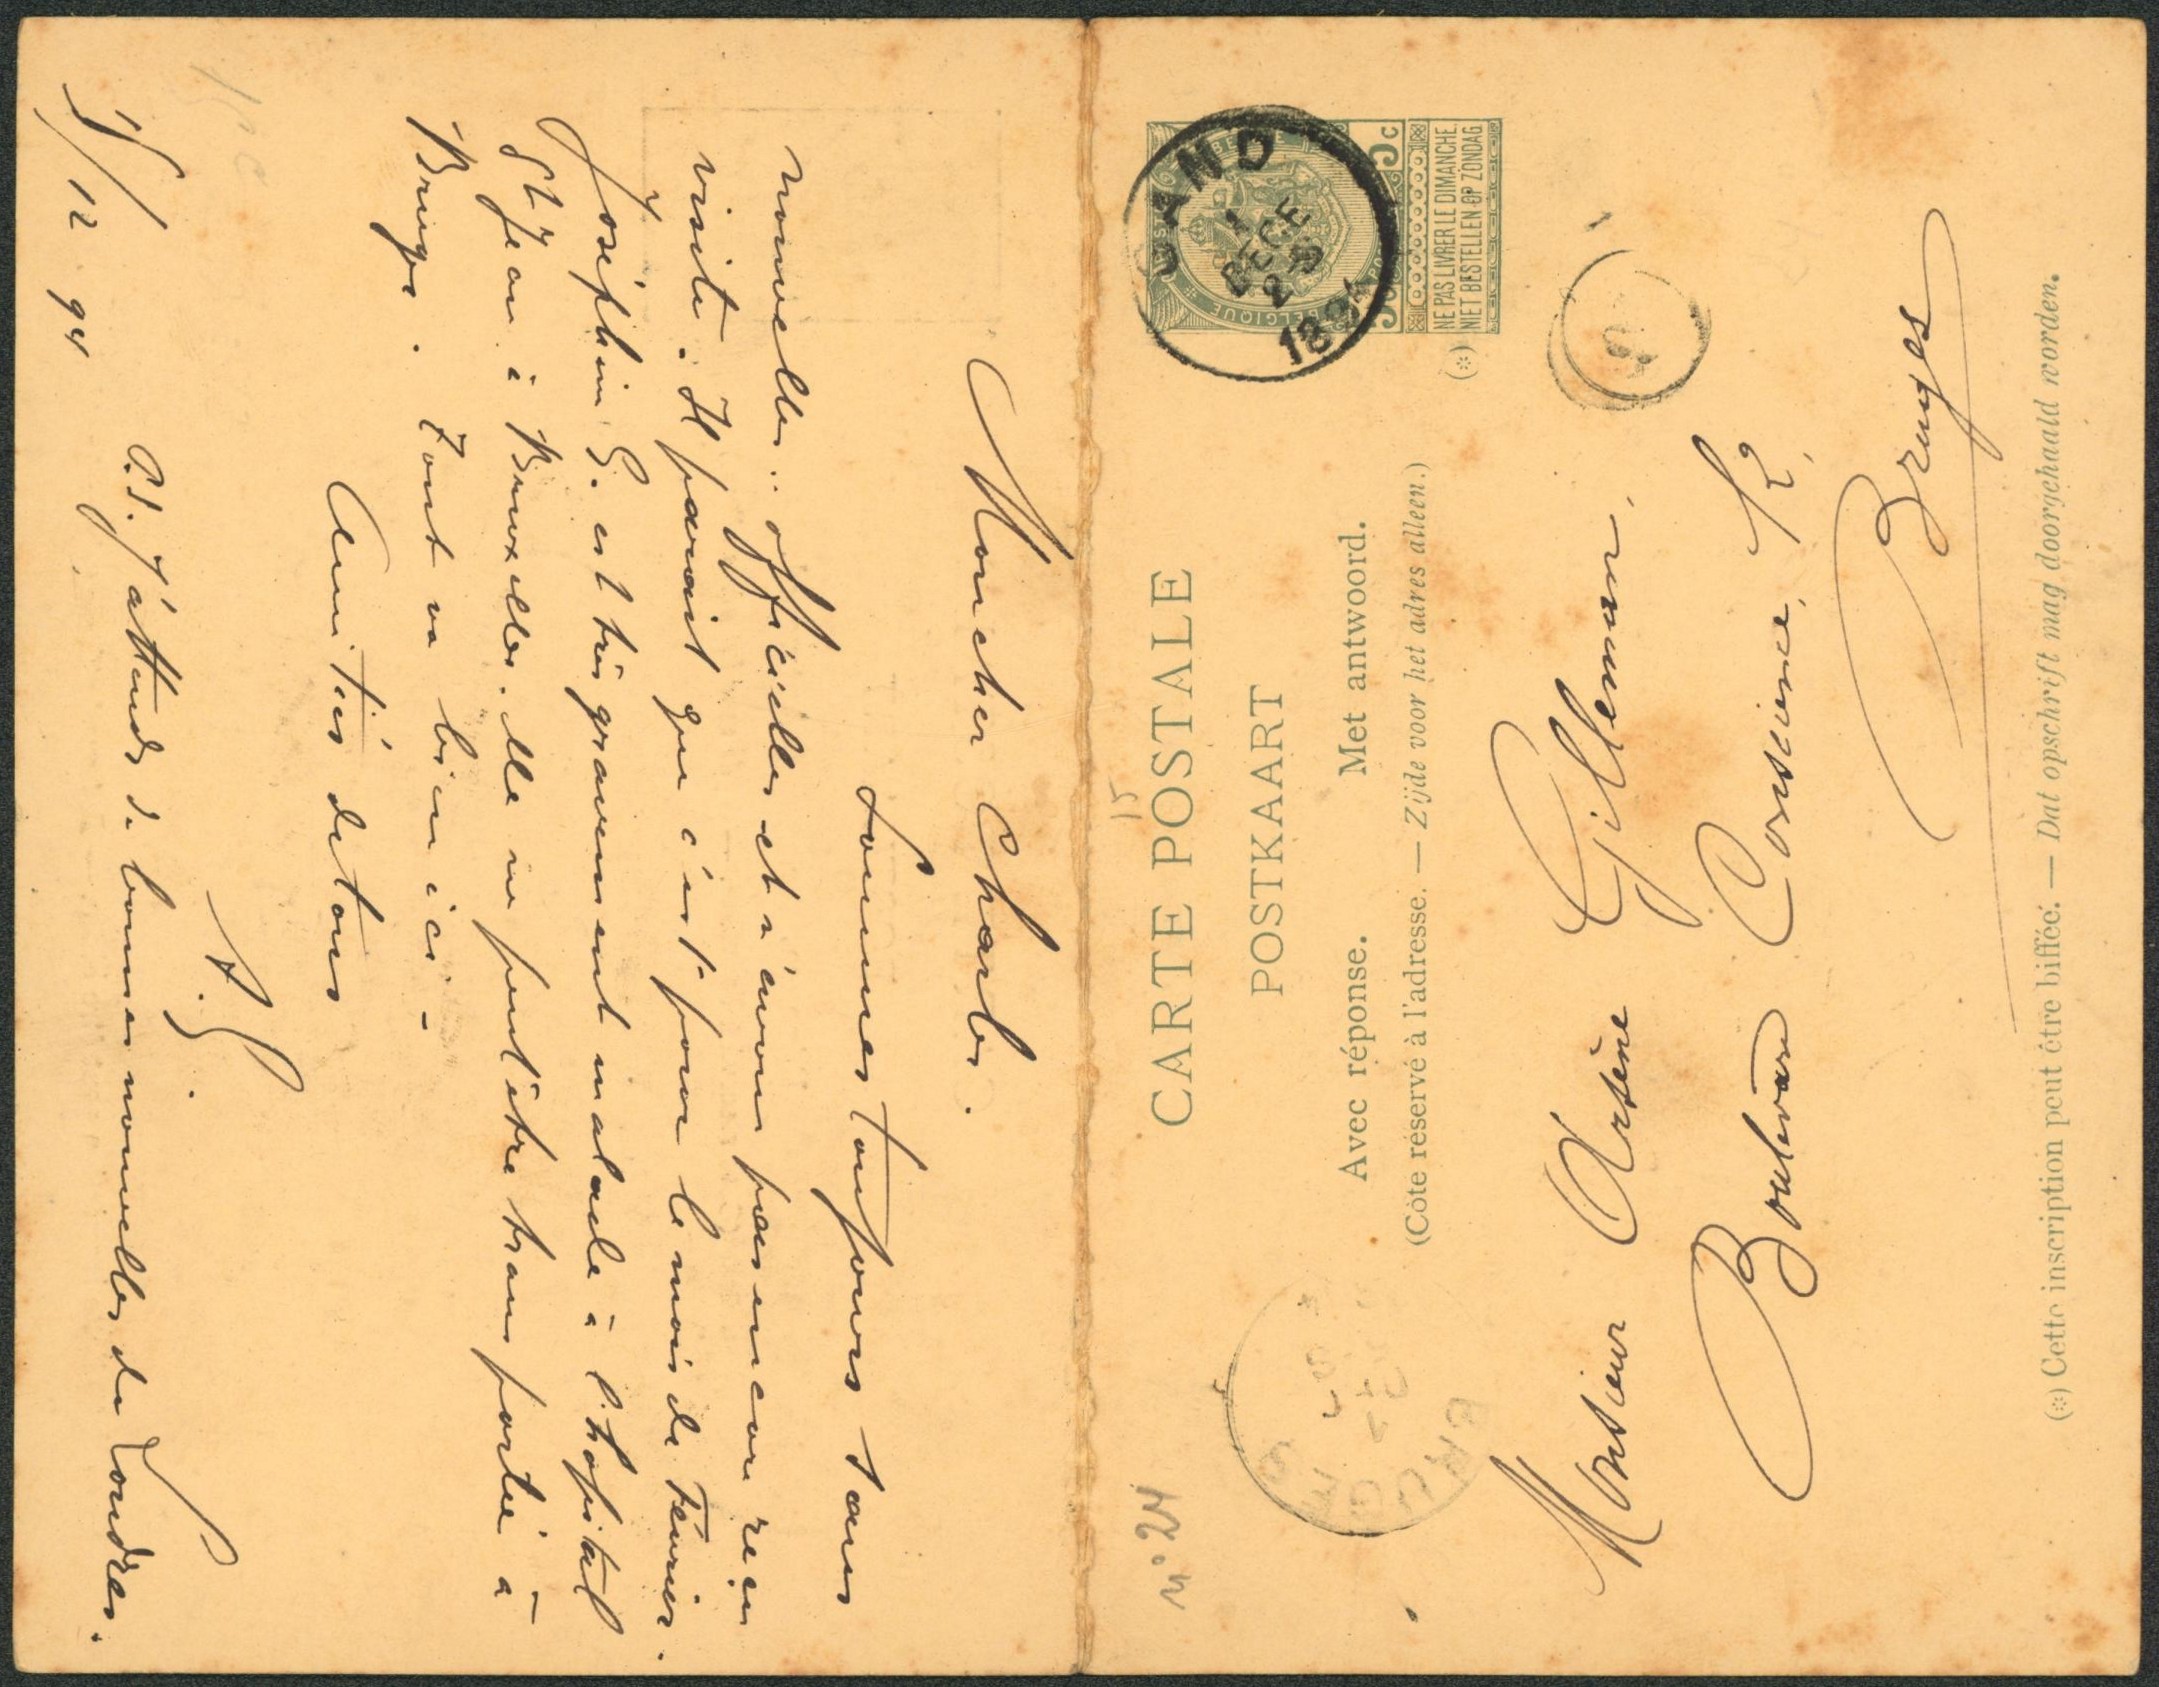 CARTE POSTALE
POSTKAART
Avec réponse. Met antwoord.
(Côté réservé à l'adresse. — Zijde voor het adres alleen.)
5c
NE PAS LIVRER LE DIMANCHE.
NIET BESTELLEN OP ZONDAG
(*)
BELGIQUE
GAND
1
DECE
1894
BRUGES
n° 24
15
Monsieur Arsène Gillemin,
Boulevard
Bruges
(*) Cette inscription peut être biffée. — Dat opschrift mag doorgehaald worden.
Mon cher Charles.
Sommes toujours sans
nouvelles officielles et n'avons pas encore reçu
visite. Il parait que c'est pour le mois de Février.
Joséphine G. est très gravement malade à l'hopital
St Jean à Bruxelles. Elle va peut être transportée à
Bruges. Tout va bien ici -
Amitiés de tous
A. G.
P.S. J'attends de bonnes nouvelles de Londres.
1/12 94